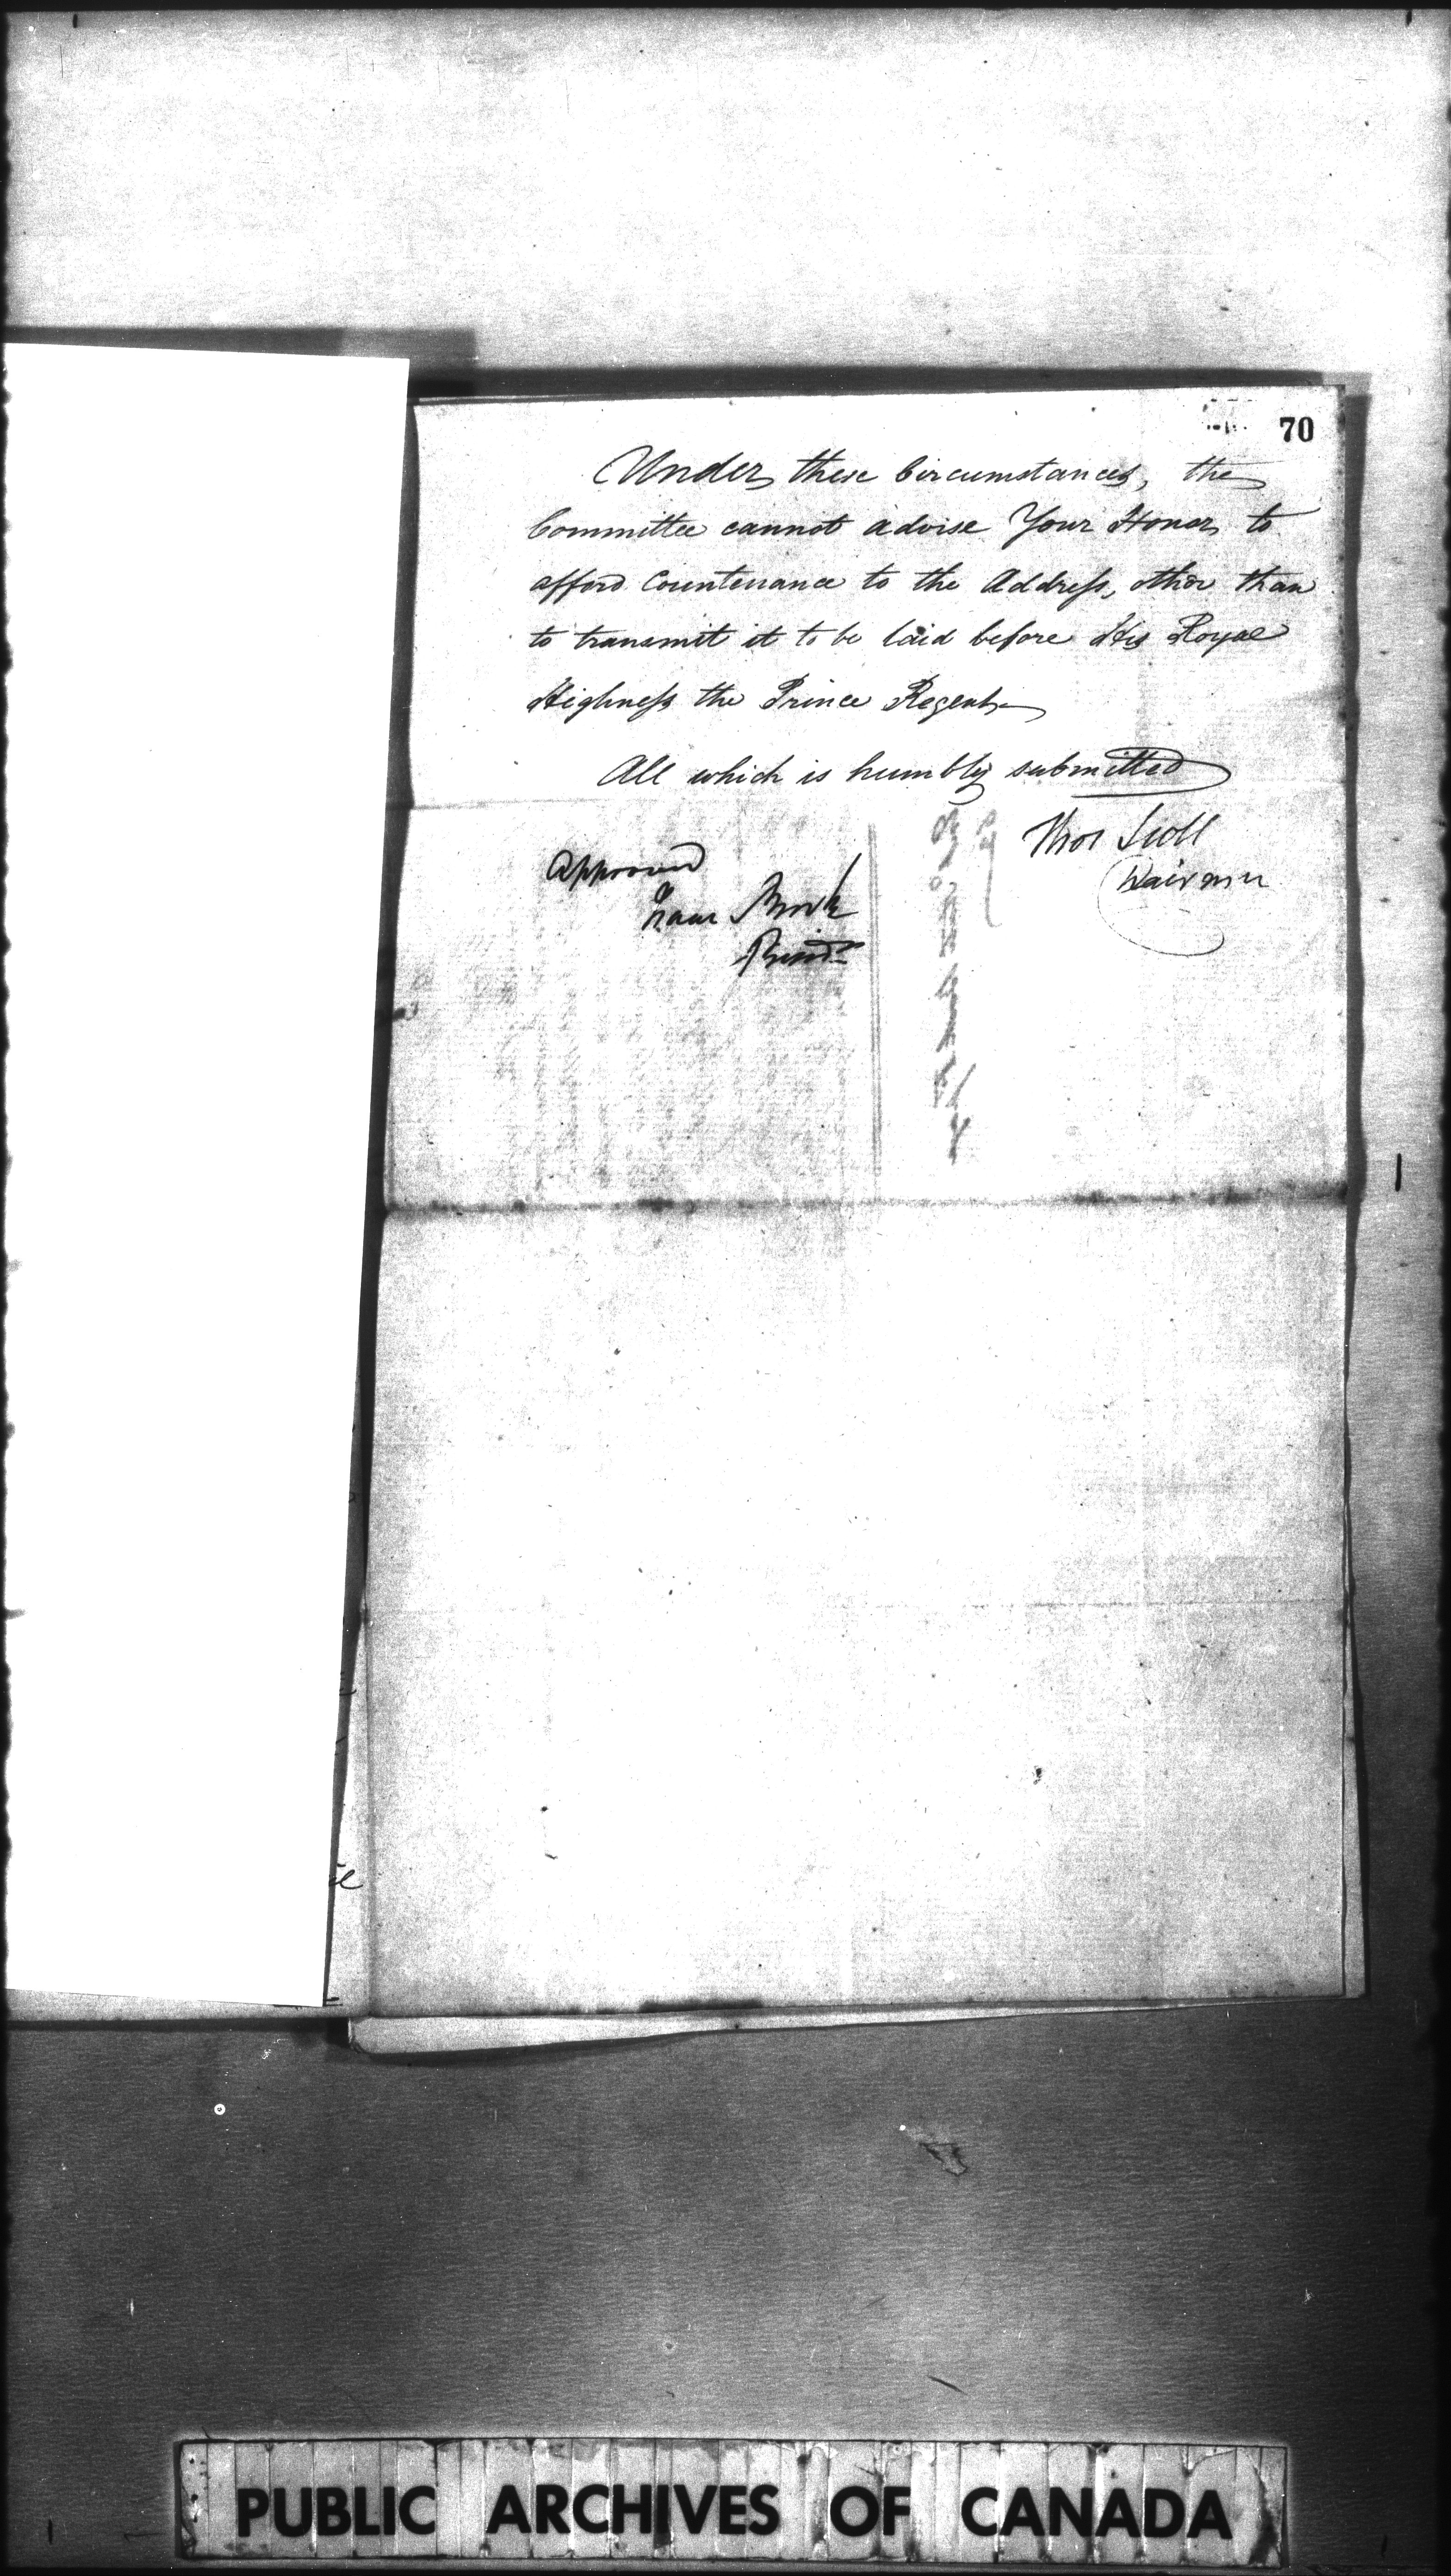 70
Under these Circumstances, the
Committee cannot advise Your Honor to
afford Countenance to the Address, other than
to transmit it to be laid before His Royal
Highness the Prince Regent
All which is humbly submitted
Thos Scott
Chairman
Approved
Isaac Brock
Presdt
PUBLIC ARCHIVES OF CANADA